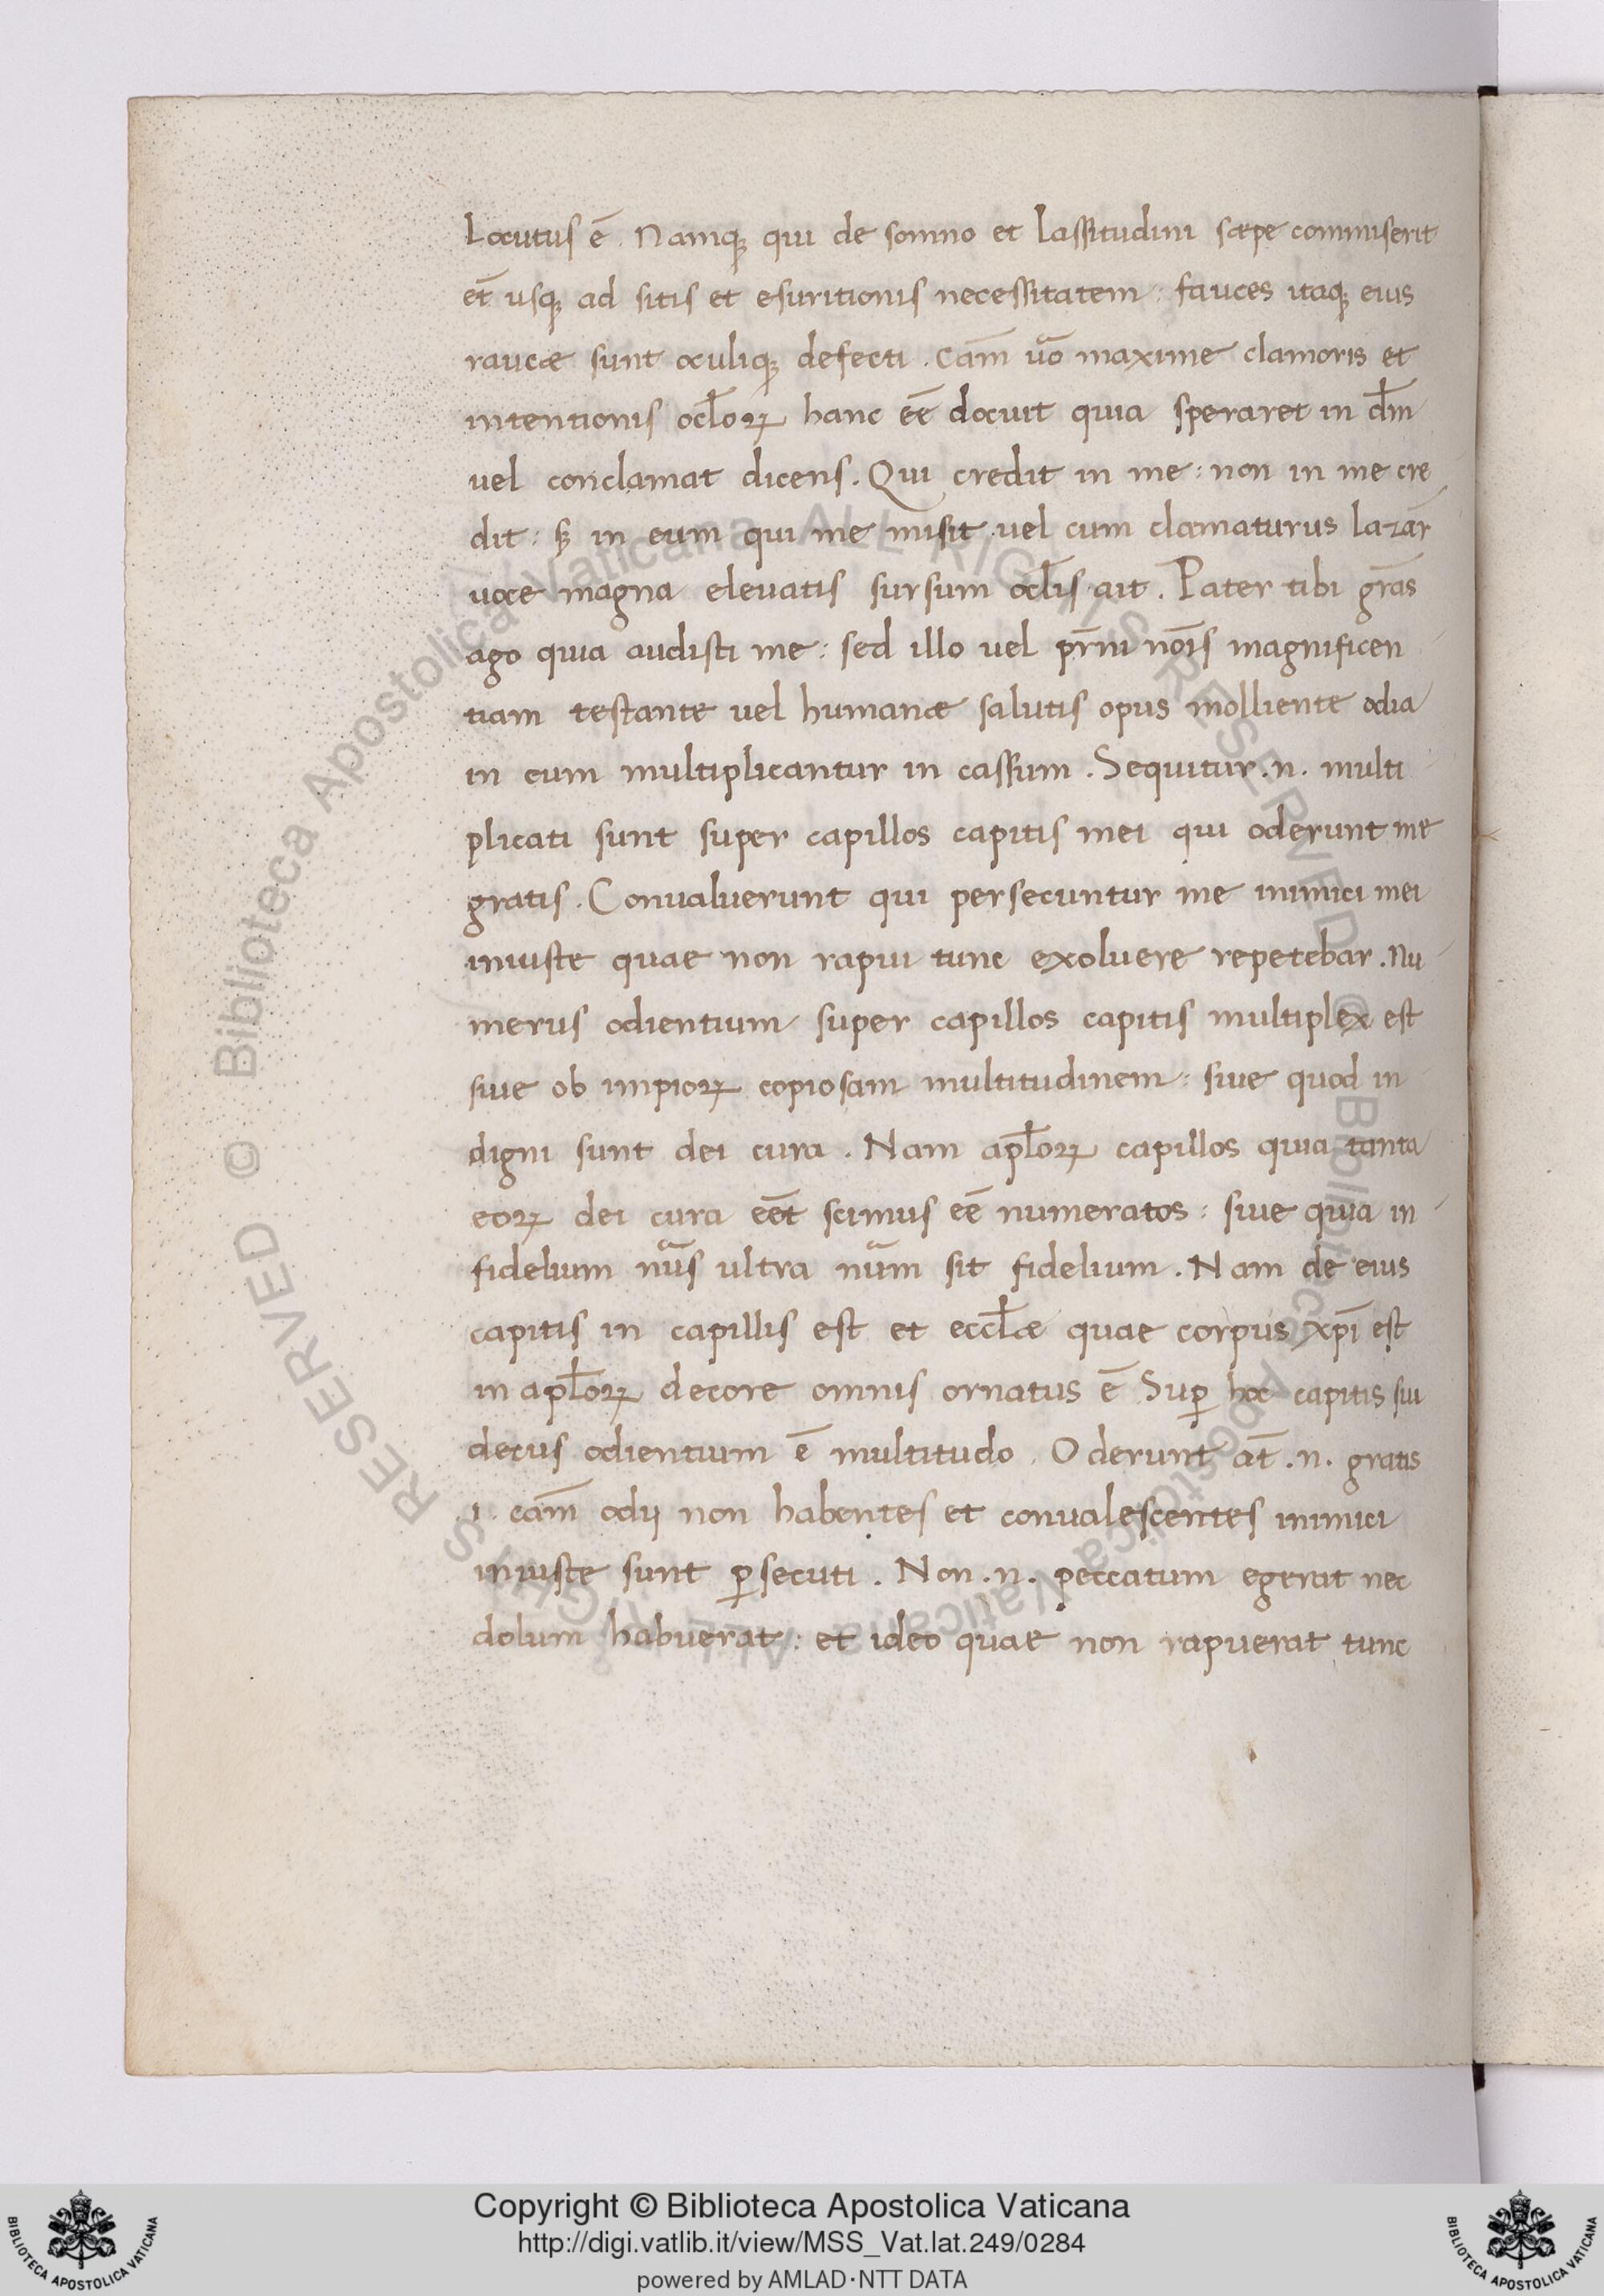 Locutus ē. Namq̨ qui de somno et lassitudini sæpe commiserit
et̄ usq̨ ad sitis et esuritionis necessitatem: fauces itaq̨ eius
raucæ sunt oculiq̨ defecti. cām uo̅ maxime clamoris et
intentionis ocl̄oꝝ hanc eē docuit quia speraret in dm̄
uel conclamat dicens. Qui credit in me: non in me cre
dit: sꝫ in eum qui me misit uel cum clamaturus lazar̄
uoce magna eleuatis sursum ocl̄is ait. Pater tibi gr̄as
ago quia audisti me: sed illo uel pr̄ni no̅is magnificen
tiam testante uel humanæ salutis opus molliente odia
in eum multiplicantur in cassum. Sequitur .n. multi
plicati sunt super capillos capitis mei qui oderunt me
gratis. Conualuerunt qui persecuntur me inimici mei
iniuste quae non rapui tunc exoluere repetebar. Nu
merus odientium super capillos capitis multiplex est
siue ob impioꝝ copiosam multitudinem: siue quod in
digni sunt dei cura. Nam apl̄oꝝ capillos quia tanta
eoꝝ dei cura eēt scimus eē numeratos: siue quia in
fidelium nu̅s ultra nu̅m sit fidelium. Nam de eius
capitis in capillis est et eccl̄æ quae corpus xp̄i est
in apl̄oꝝ decore omnis ornatus ē Suꝑ hoc capitis sui
decus odientium ē multitudo. Oderunt at̄ .n. gratis
.i. cām odij non habentes et conualescentes inimici
iniuste sunt ꝑsecuti. Non .n. peccatum egerat nec
dolum habuerat: et ideo quae non rapuerat tunc
Copyright © Biblioteca Apostolica Vaticana
http://digi.vatlib.it/view/MSS_Vat.lat.249/0284
powered by AMLAD·NTT DATA
BIBLIOTECA APOSTOLICA VATICANA
BIBLIOTECA APOSTOLICA VATICANA
© Biblioteca Apostolica Vaticana ALL RIGHTS RESERVED © Biblioteca Apostolica Vaticana ALL RIGHTS RESERVED